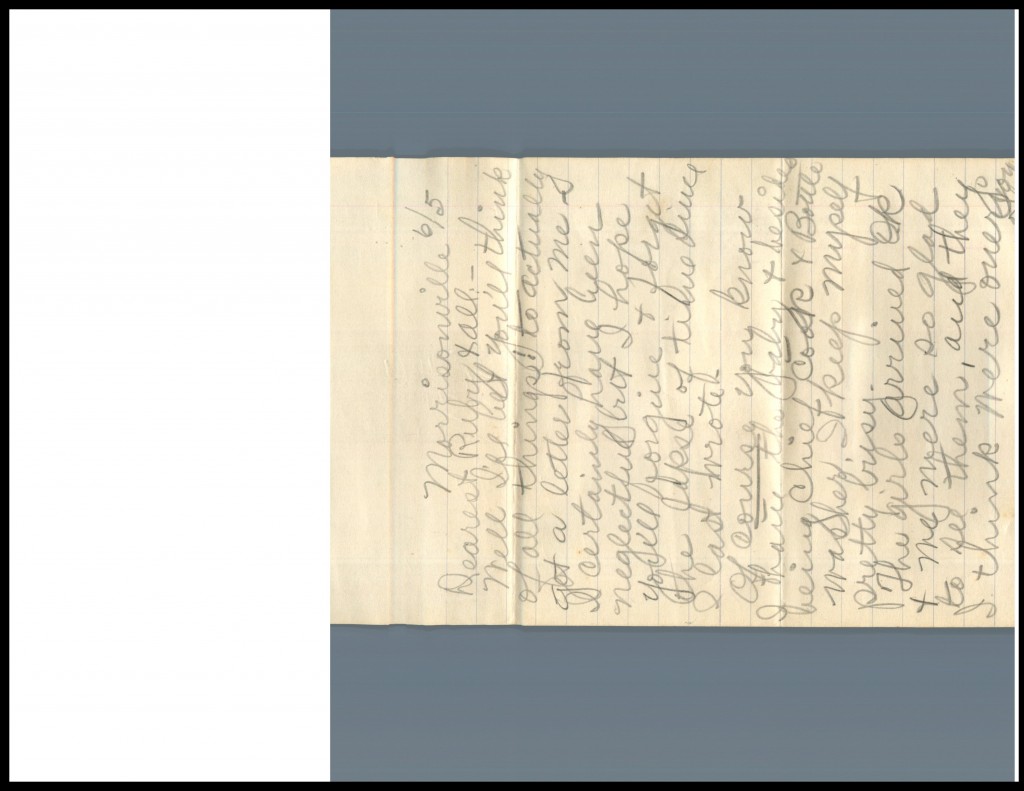 Morrisonville 6/5
Dearest Ruby & all:—
Well I'll bet you'll think
of all things! to actually
got a letter from me. I
I certainly have been
neglectful but I hope
you'll forgive & forget
the lapse of time since
I last wrote.
Of course you know
I have the baby & beside
being Chief Cook & Bottle
washer I keep myself
pretty busy.
The girls arrived OK
& we were so glad
to see them, and they
I think were over